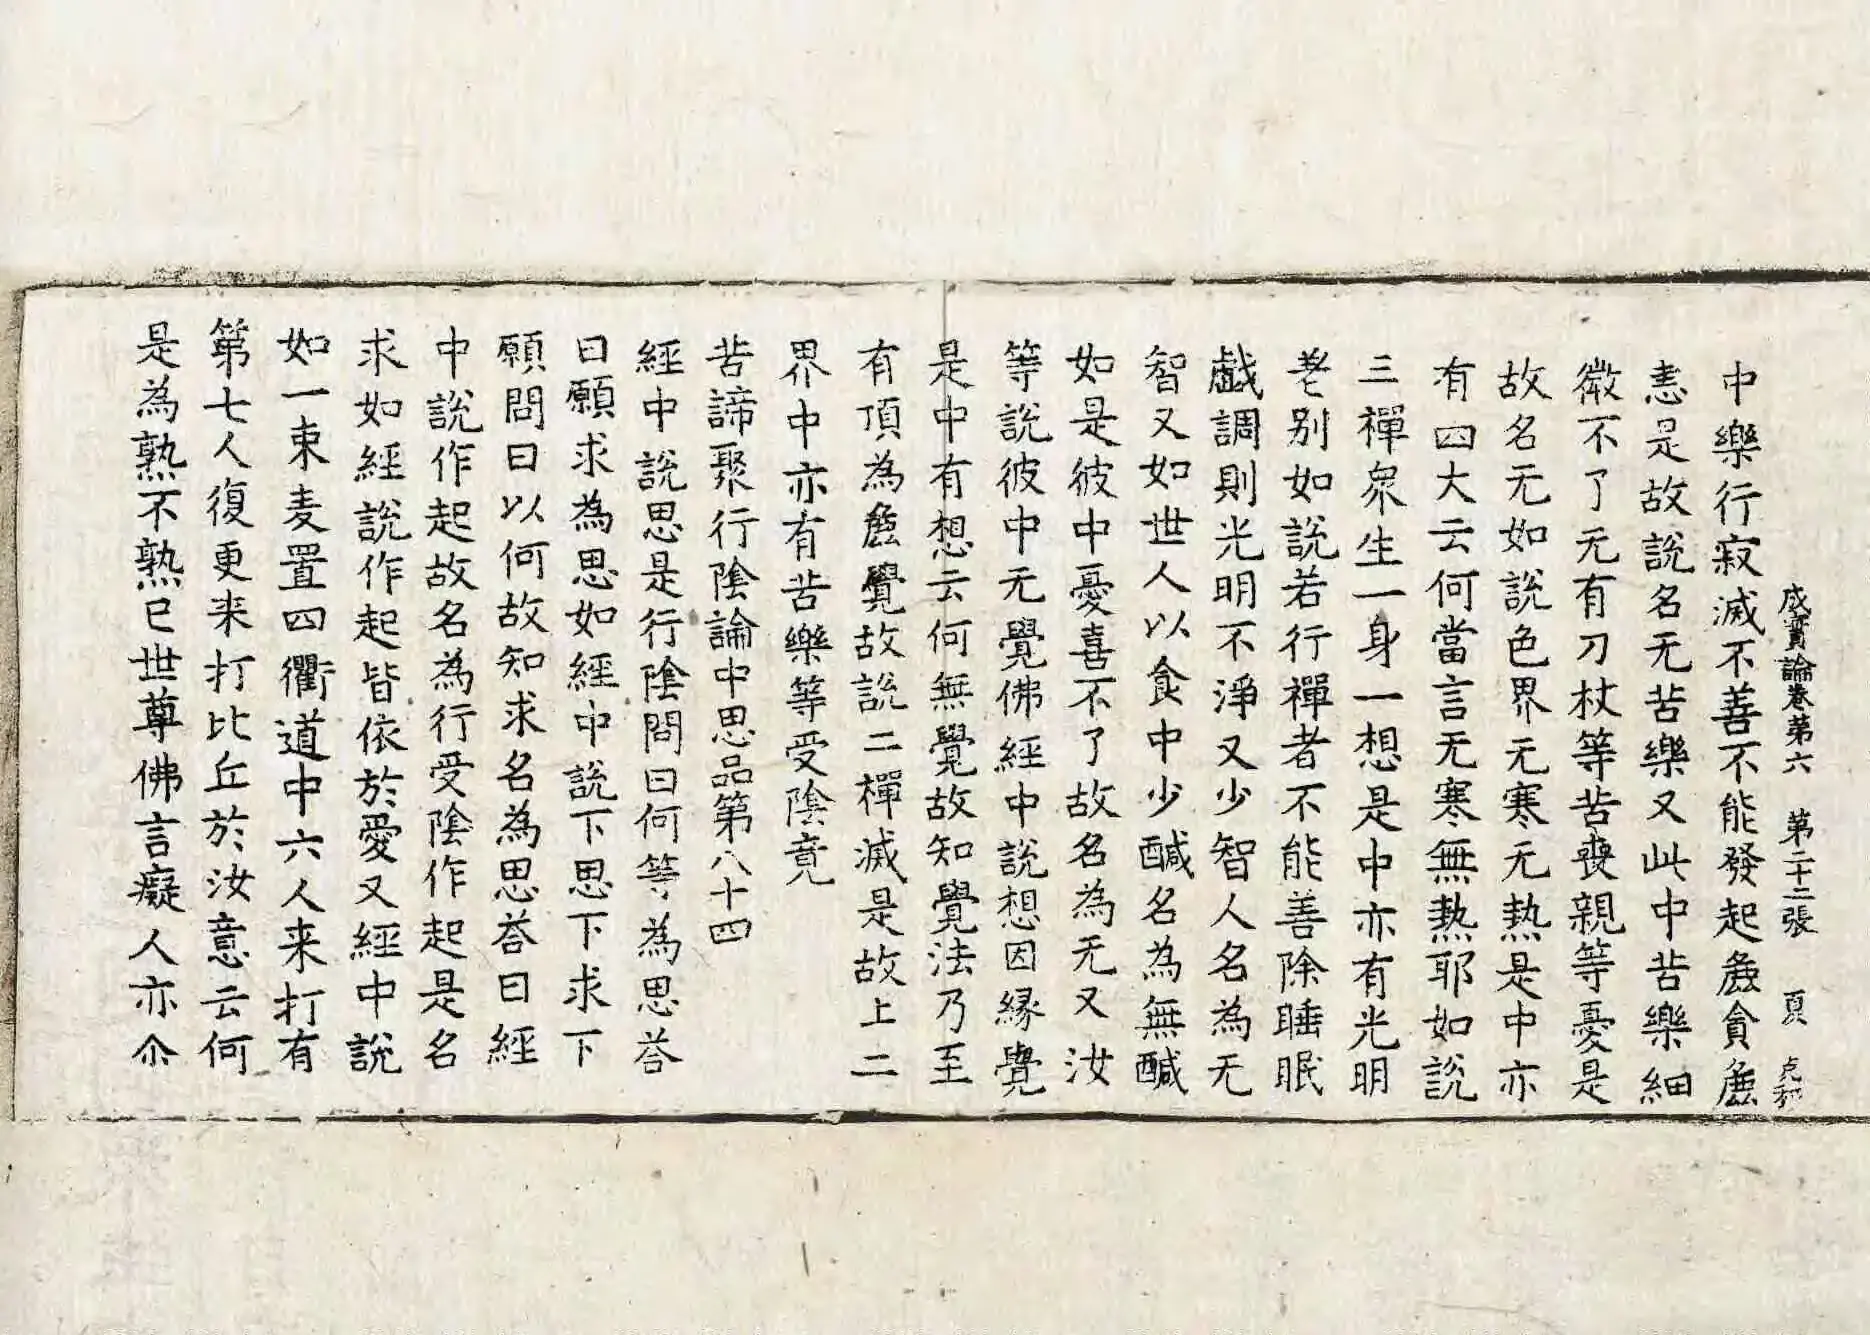 成實論卷第六　第二十二張　夏
中樂行寂滅不善不能發起麁貪麁
恚是故說名无苦樂又此中苦樂細
微不了无有刀杖等苦喪親等憂是
故名无如說色界无寒无熱是中亦
有四大云何當言无寒無熱耶如說
三禪衆生一身一想是中亦有光明
差别如說若行禪者不能善除睡眠
戲調則光明不淨又少智人名為无
智又如世人以食中少醎名為無醎
如是彼中憂喜不了故名為无又汝
等說彼中无覺佛經中說想因縁覺
是中有想云何無覺故知覺法乃至
有頂為麁覺故說二禪滅是故上二
界中亦有苦樂等受陰竟
苦諦聚行陰論中思品第八十四
經中說思是行陰問曰何等為思荅
曰願求為思如經中說下思下求下
願問曰以何故知求名為思荅曰經
中說作起故名為行受陰作起是名
求如經說作起皆依於愛又經中說
如一束麦置四衢道中六人来打有
第七人復更来打比丘於汝意云何
是為熟不熟已世尊佛言癡人亦尒